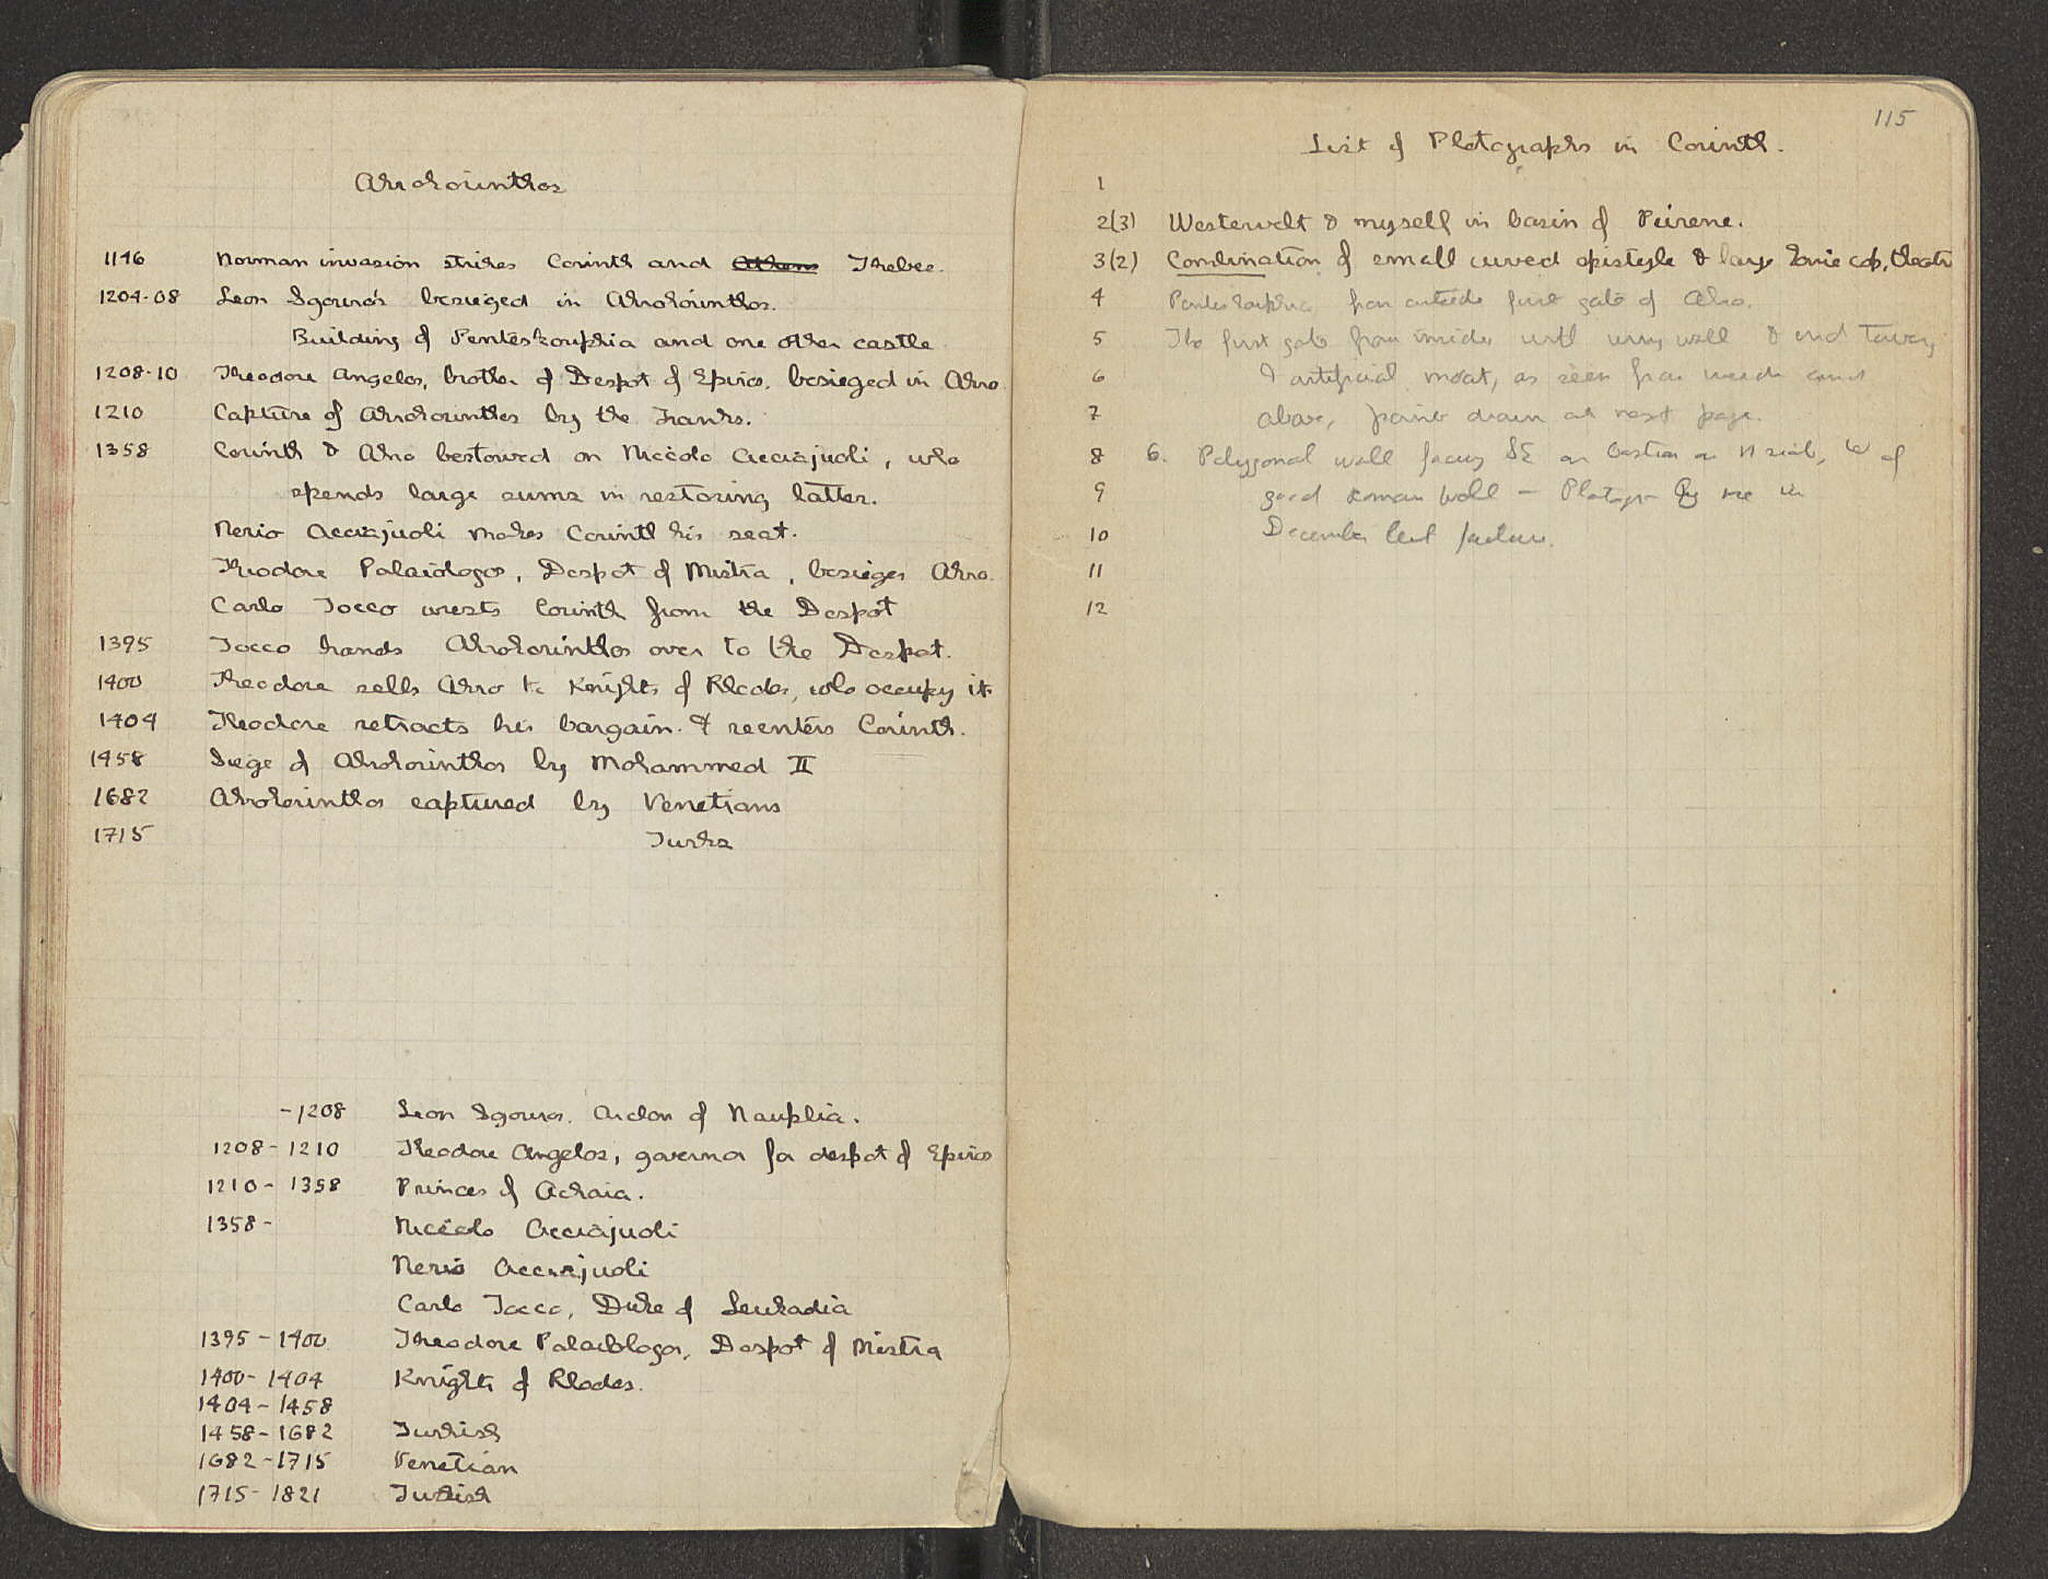 Akrokorinthos
1146 Norman invasion strikes Corinth and Athens Thebes.
1204-08 Leon Sgouros besieged in Akrokorinthos.
Building of Penteskouphia and one other castle
1208-10 Theodore Angelos, brother of Despot of Epiros, besieged in Akro.
1210 Capture of Akrokorinthos by the Franks.
1358 Corinth & Akro bestowed on Niccolo Acciajuoli, who
spends large sums in restoring latter.
Nerio Acciajuoli makes Corinth his seat.
Theodore Palaiologos, Despot of Mistra, besieges Akro.
Carlo Tocco wrests Corinth from the Despot
1395 Tocco hands Akrokorinthos over to the Despot.
1400 Theodore sells Akro to Knights of Rhodes, who occupy it
1404 Theodore retracts his bargain & reenters Corinth.
1458 Siege of Akrokorinthos by Mohammed II
1682 Akrokorinthos captured by Venetians
1715 Turks
-1208 Leon Sgouros, Archon of Nauplia.
1208-1210 Theodore Angelos, governor for despot of Epiros
1210-1358 Princes of Achaia.
1358- Niccolo Acciajuoli
Nerio Acciajuoli
Carlo Tocco, Duke of Leukadia
1395-1400 Theodore Palaiologos, Despot of Mistra
1400-1404 Knights of Rhodes.
1404-1458
1458-1682 Turkish
1682-1715 Venetian
1715-1821 Turkish
115
List of Photographs in Corinth.
1
2(3) Westervelt & myself in basin of Peirene.
3(2) Combination of small curved epistyle & large Ionic cap, theatre
4 Penteskouphia from outside first gate of Akro.
5 The first gate from inside, with wall & end tower,
6 & artificial moat, as seen from
7 above, point on next page.
8 6. Polygonal wall facing SE on bastion on N side, W of
9 good Roman wall - Photogr by me in
10 December
11
12